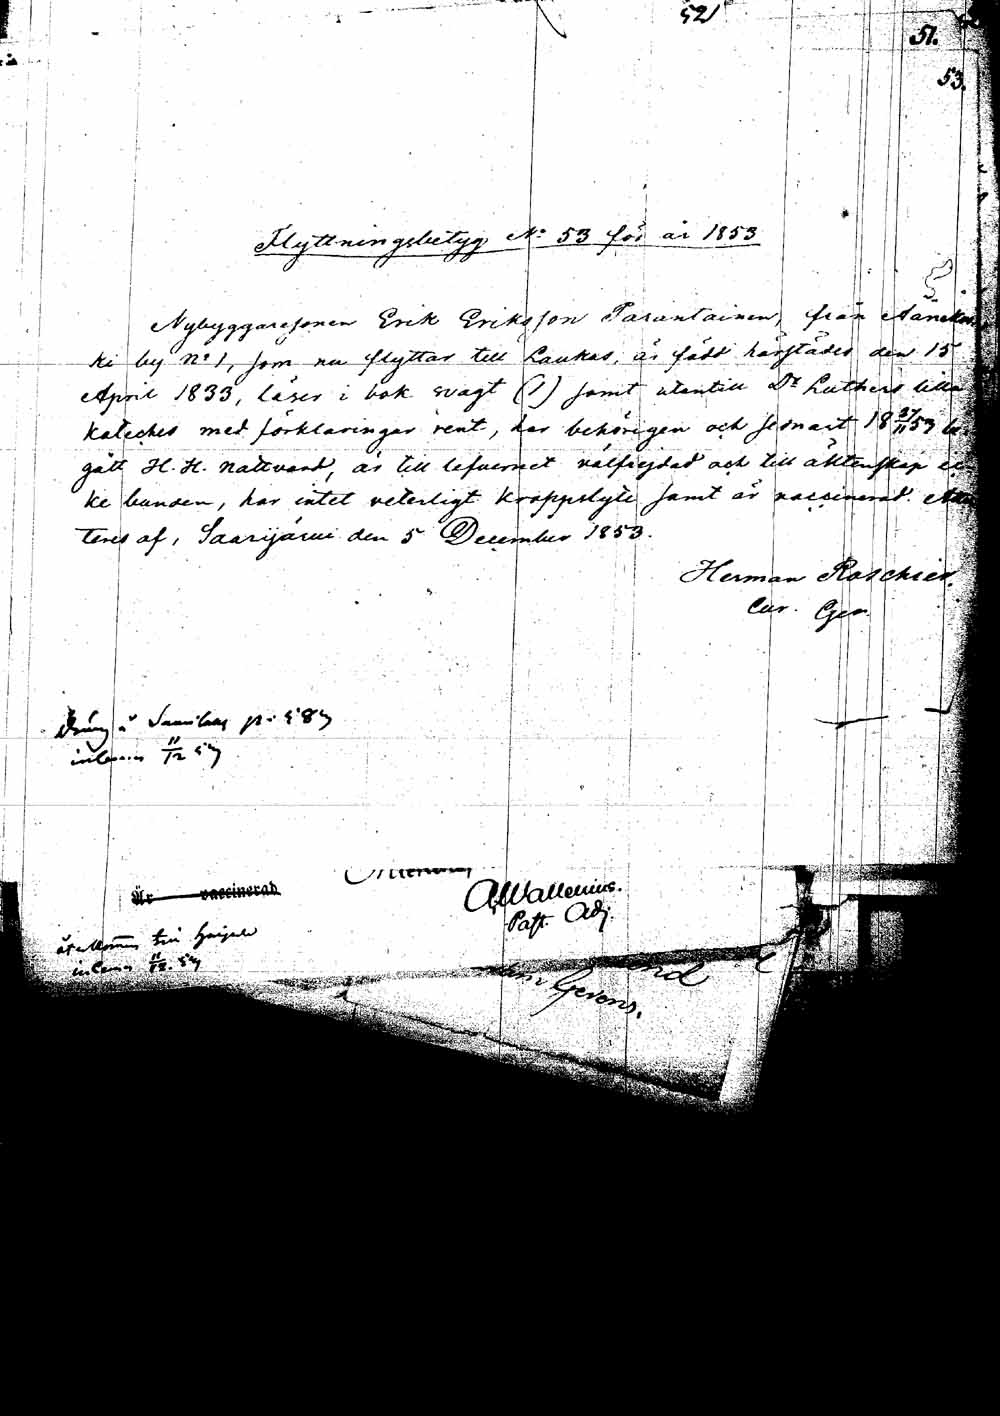 52
51.
53.
Flyttningsbetyg No 53 för år 1853
Nybyggaresonen Erik Eriksson Tarantainen, från Äänekos-
ki by No 1, som nu flyttar till Laukas, är född härstädes den 15
April 1833, läser i bok svagt (1) samt utantill Dr Luthers lilla
kateches med förklaringar rent, har behörigen och sednast 18 27/11 53 be-
gått H. H. nattvard, är till lefvernet välfrejdad och till äktenskap ic-
ke bunden, har intet veterligt kroppslyte samt är vaccinerad. Atte-
steres af, Saarijärvi den 5 December 1853.
Herman Roschier.
Cur. Ger.
11/12 53
Är vaccinerad
A Wallenius.
Past. Adj.
11/12. 53